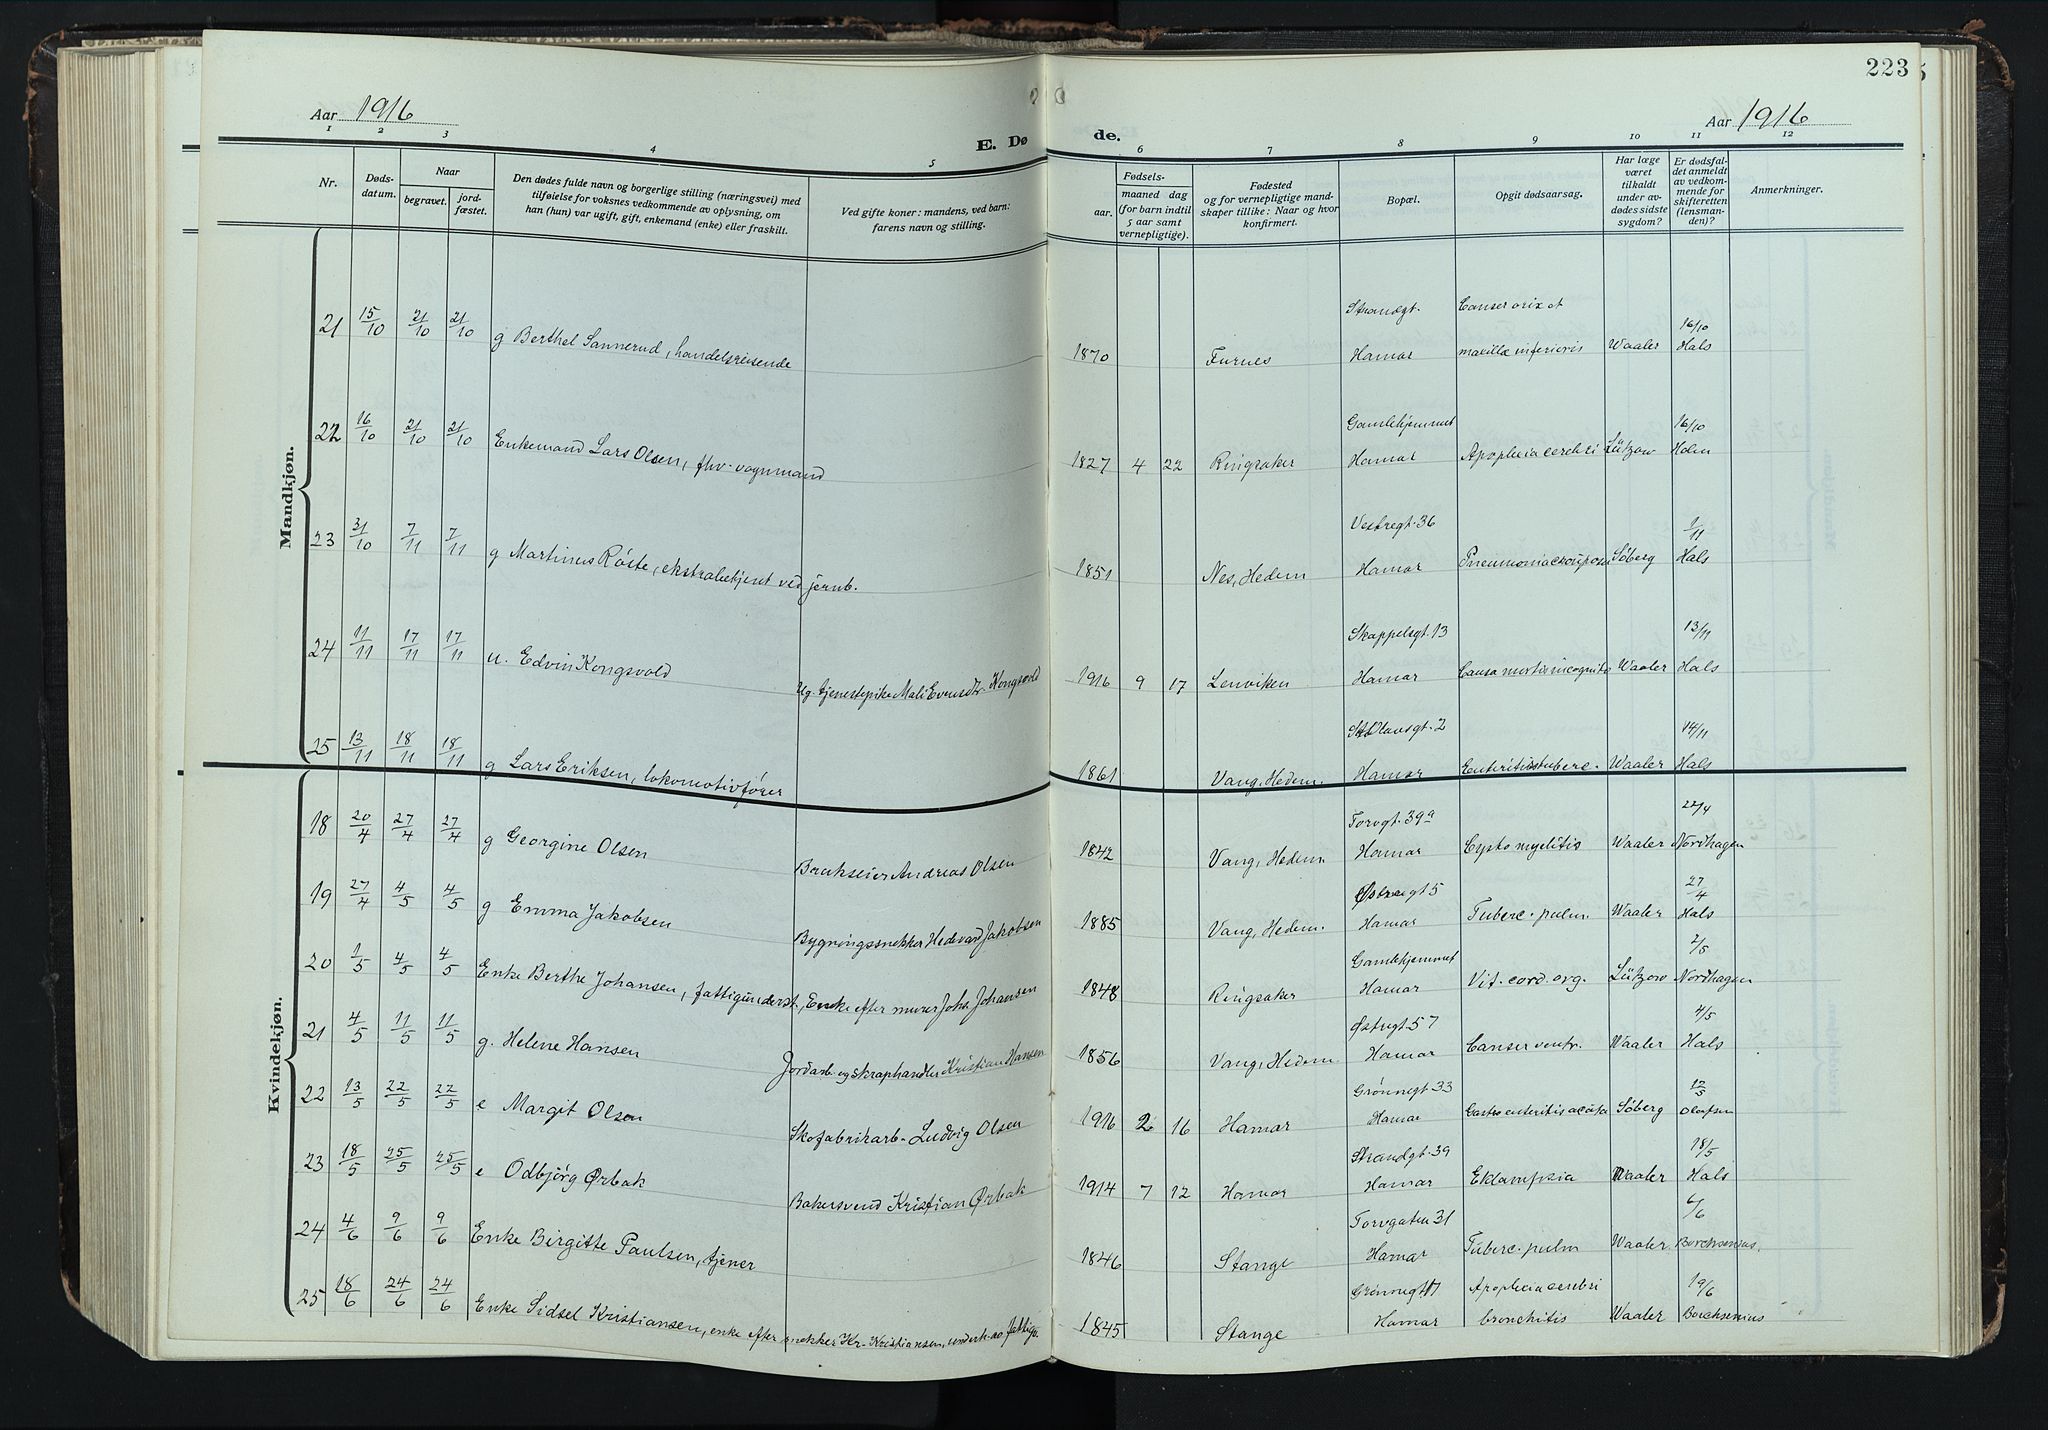 223
Aar 1916
Aar 1916
E. Døde.
1 2 3 4 5 6 7 8 9 10 11 12
Nr.
Døds-
datum.
Naar
begravet.
jord-
fæstet.
Den dødes fulde navn og borgerlige stilling (næringsvei) med
tilføielse for voksnes vedkommende av oplysning, om
han (hun) var ugift, gift, enkemand (enke) eller fraskilt.
Ved gifte koner: mandens, ved barn:
farens navn og stilling.
Fødsels-
aar.
maaned dag
(for barn indtil
5 aar samt
vernepligtige).
Fødested
og for vernepligtige mand-
skaper tillike: Naar og hvor
konfirmert.
Bopæl.
Opgit dødsaarsag.
Har læge
været
tilkaldt
under av-
dødes sidste
sygdom?
Er dødsfal-
det anmeldt
av vedkom-
mende for
skifteretten
(lensman-
den)?
Anmerkninger.
Mandkjøn.
21 15/10 21/10 21/10 g Berthel Sannerud, handelsreisende 1870 Furnes Strandgt. Hamar Canser maxillæ inferioris Waaler 16/10 Hals
22 16/10 21/10 21/10 Enkemand Lars Olsen, fhv. vognmand 1827 4 22 Ringsaker Gamlehjemmet Hamar Apoplexia cerebri Lützow 16/10 Holm
23 31/10 7/11 7/11 g Martinus Røste, ekstrabetjent ved jernb. 1851 Nes, Hedem Vestregt. 36 Hamar Pneumonia crouposa Søberg 1/11 Hals
24 11/11 17/11 17/11 u. Edvin Kongsvold Ug. tjenestepike Mali Evensdtr. Kongsvold 1916 9 17 Lenviken Skappelsgt. 13 Hamar Causa mortis incognita Waaler 13/11 Hals
25 13/11 18/11 18/11 g Lars Eriksen, lokomotivfører 1861 Vang, Hedem. St. Olavsgt. 2 Hamar Enteritis tuberc. Waaler 14/11 Hals
Kvindekjøn.
18 20/4 27/4 27/4 g Georgine Olsen Brukseier Andreas Olsen 1842 Vang, Hedem Torvgt. 39a Hamar Cysto myelitis Waaler 22/4 Nordhagen
19 27/4 4/5 4/5 g Emma Jakobsen Bygningssnekker Hedevard Jakobsen 1885 Vang, Hedem. Østregt 5 Hamar Tuberc. pulm. Waaler 27/4 Hals
20 1/5 4/5 4/5 Enke Berthe Johansen, fattigunderst., Enke efter murer Johs. Johansen 1848 Ringsaker Gamlehjemmet Hamar Vit. cord. org. Lützow 2/5 Nordhagen
21 4/5 11/5 11/5 g. Helene Hansen Jordarb. og skraphandler Kristian Hansen 1856 Vang, Hedem. Østregt 57 Hamar Canser ventr. Waaler 4/5 Hals
22 13/5 22/5 22/5 e Margit Olsen Skofabrikarb. Ludvig Olsen 1916 2 16 Hamar Grønnegt. 33 Hamar Gastro enteritis acuta Søberg 12/5 Olafsen
23 18/5 25/5 25/5 e Odbjørg Ørbak Bakersvend Kristian Ørbak 1914 7 12 Hamar Strandgt. 39 Hamar Eklampsia Waaler 18/5 Hals
24 4/6 9/6 9/6 Enke Birgitte Paulsen, tjener 1846 Stange Torvgaten 31 Hamar Tuberc. pulm Waaler 6/6 Borchsenius.
25 18/6 24/6 24/6 Enke Sidsel Kristiansen, enke efter snekker Kr. Kristiansen, underh. av fattigv. 1845 Stange Grønnegt 17 Hamar Apoplexia cerebri bronchitis Waaler 19/6 Borchsenius